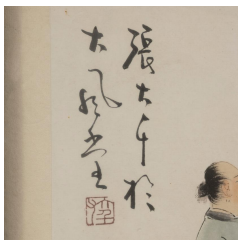 張大千於
大風堂